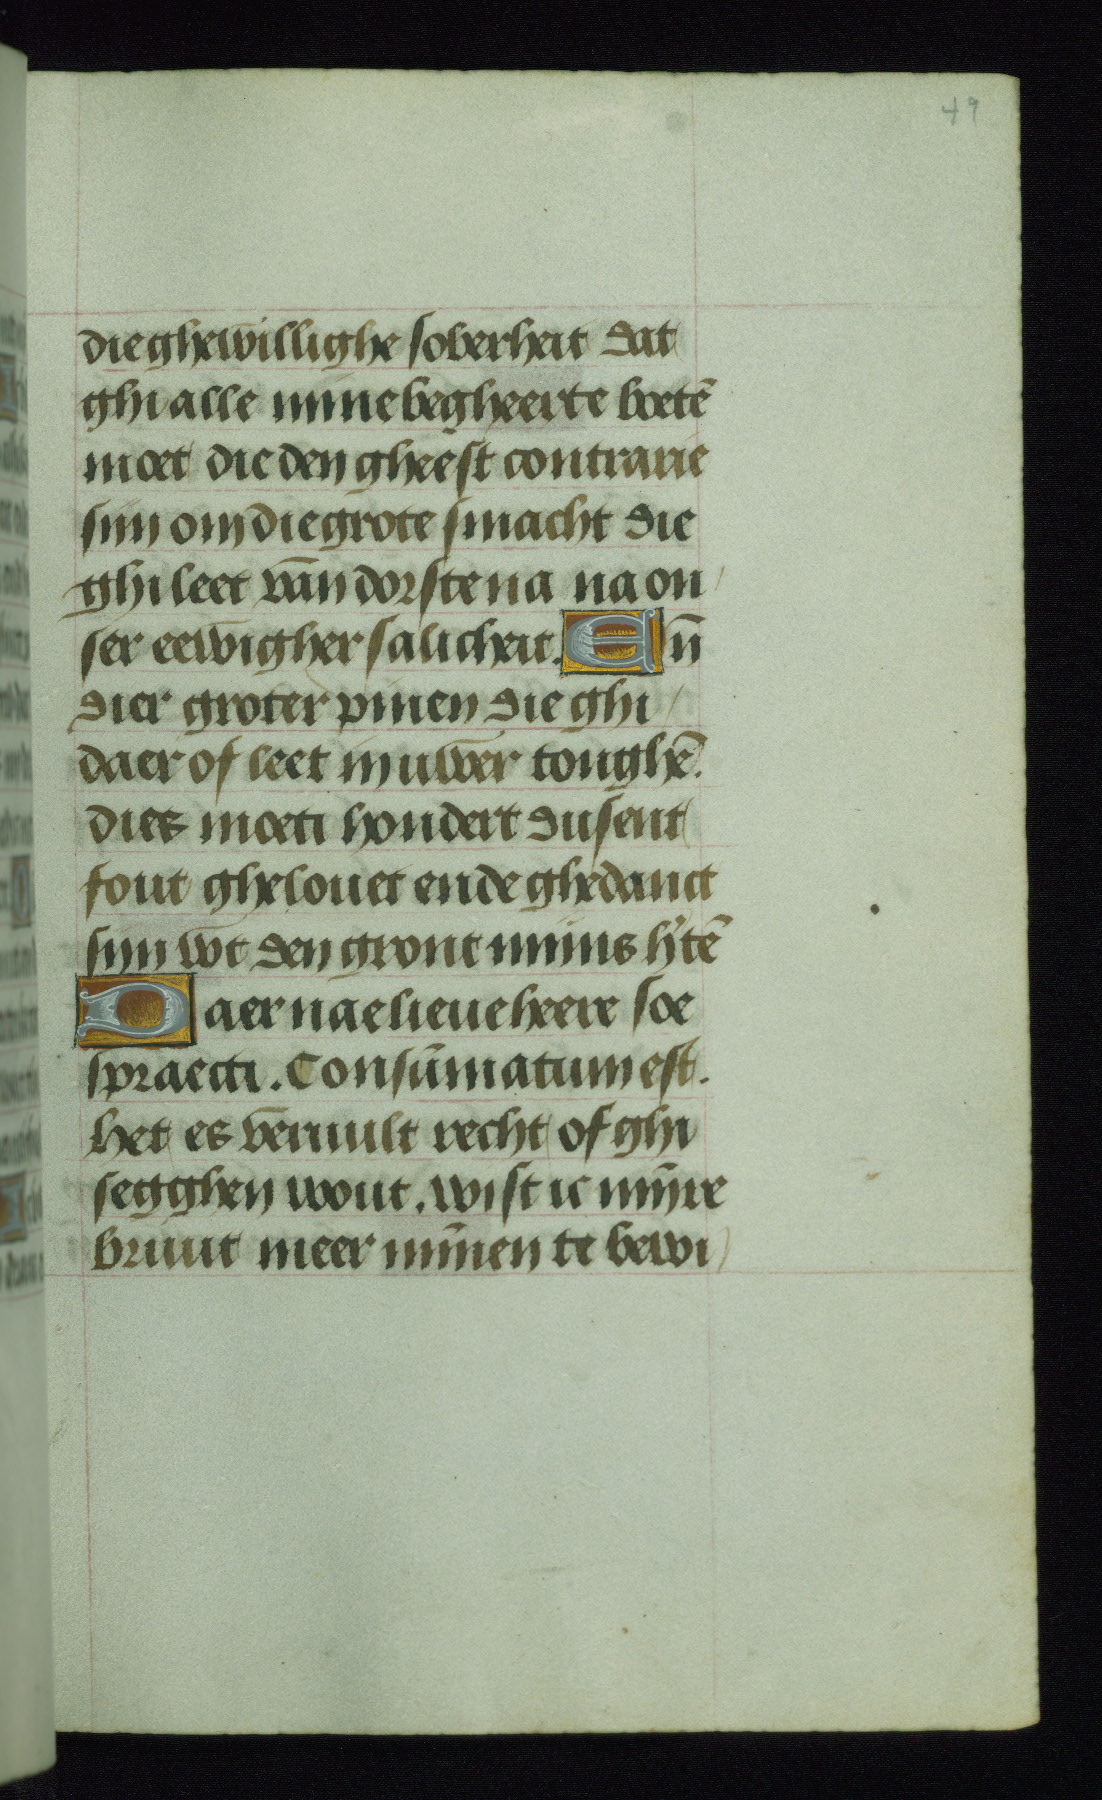 49
die ghewillighe soberheit dat
ghi alle mine begheerte boetē
moet die den gheest contrarie
sijn om die grote smacht die
ghi leet van dorste na na on
ser eewigher salicheit. En̄
dier groter pinen die ghi
daer of leet in uwer tonghē.
dies moeti hondert dusent
fout ghelouet ende ghedanct
sijn wt den gront mijns h'tē
Daer nae lieue heere soe
spraecti. Consūmatum est.
Het es veruult recht of ghi
segghen wout. wist ic mijre
bruut meer mīnen te bewi